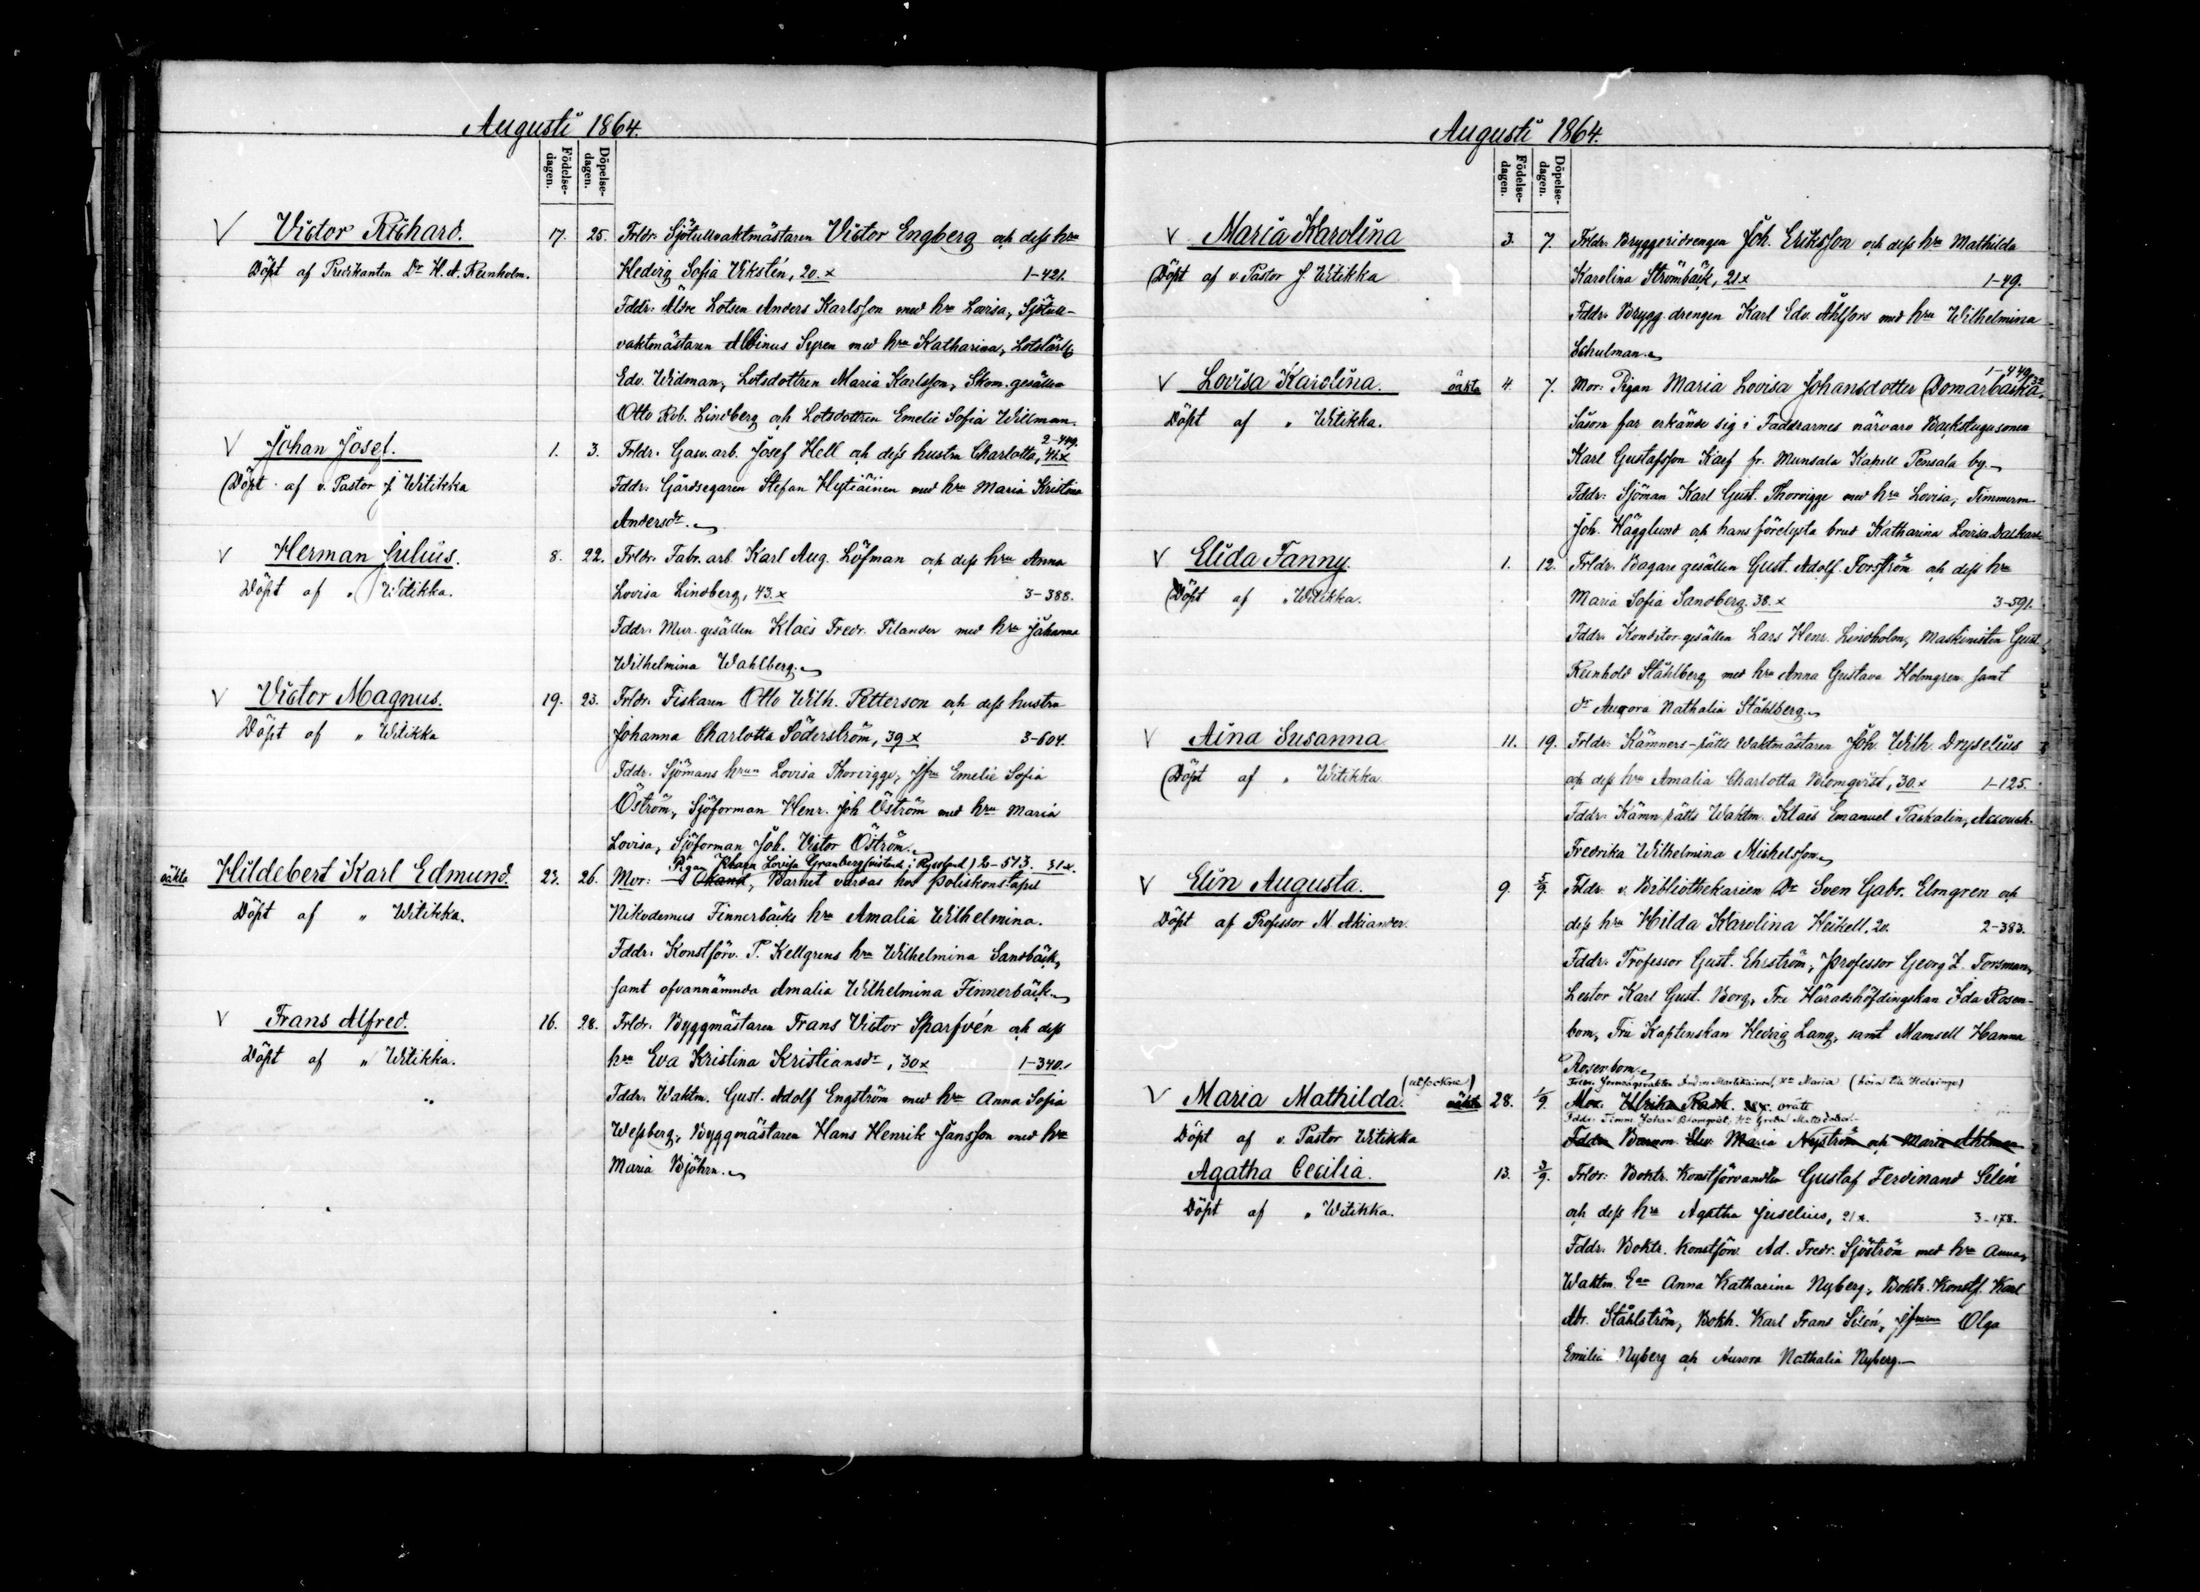 Augusti 1864.
Födelse-dagen.
Döpelse-dagen.
Victor Richard.
17. 25. Frldr. Sjötullvaktmästaren Victor Engberg och dess hru
Döpt af Predikanten Dr H. A. Reinholm.
Hedvig Sofia Vikstén, 20. x 1-421.
Fddr: Äldre Lotsen Anders Karlsson med hru Lovisa, Sjötull-
vaktmästaren Albinus Syren med hru Katharina, Lotslärl.
Edv. Widman, Lotsdottren Maria Karlsson, Skom. gesällen
Otto Rob. Lindberg och Lotsdottren Emelie Sofia Willman.
2-449.
Johan Josef.
1. 3. Frldr. Gasv. arb. Josef Hell och dess hustru Charlotta, 41. x
Döpt af v. Pastor J. Witikka
Fddr: Gårdsegaren Stefan Hytiäinen med hru Maria Kristina
Andersdr.
Herman Julius.
8. 22. Frldr. Fabr. arb. Karl Aug. Löfman och dess hru Anna
Döpt af " Witikka.
Lovisa Lindberg, 43. x 3-388.
Fddr. Mur. gesällen Klaës Fredr. Tilander med hru Johanna
Wilhelmina Wahlberg.
Victor Magnus.
19. 23. Frldr. Fiskaren Otto Wilh. Petterson och dess hustru
Döpt af " Witikka
Johanna Charlotta Söderström, 39 x 3-604.
Fddr. Sjömans hrun Lovisa Thorvigge, Jfru Emelie Sofia
Öström, Sjöforman Henr. Joh Öström med hru Maria
Lovisa, Sjöforman Joh. Victor Öström.
Pigan Johana Lovisa Granberg (vistand. i Ryssland) 2-513. 31 x.
oäkta Hildebert Karl Edmund.
23. 26. Mor: Okänd, Barnet vårdas hos Poliskonstapel
Döpt af " Witikka.
Nikodemus Finnerbäcks hru Amalia Wilhelmina.
Fddr: Konstförv. P. Kellgrens hru Wilhelmina Sandbäck,
samt ofvannämnda Amalia Wilhelmina Finnerbäck.
Frans Alfred.
16. 28. Frldr. Byggmästaren Frans Victor Sparfvén och dess
Döpt af " Witikka.
hru Eva Kristina Kristiansdr, 30 x 1-340.
Fddr. Waktm. Gust. Adolf Engström med hru Anna Sofia
Wessberg, Byggmästaren Hans Henrik Jansson med hru
Maria Björn.
Augusti 1864.
Födelse-dagen.
Döpelse-dagen.
Maria Karolina
3. 7. Frldr. Bryggeridrengen Joh. Eriksson och dess hru Mathilda
Döpt af v. Pastor J. Witikka
Karolina Strömbäck, 21. x 1-49.
Fddr. Brygg. drengen Karl Edv. Åhlfors med hru Wilhelmina
Schulman.
1-449
Lovisa Karolina. oäkta
4. 7. Mor: Pigan Maria Lovisa Johansdotter Domarbacka
Döpt af " Witikka.
Såsom far erkände sig i Faddrarnes närvaro Backstugusonen
Karl Gustafsson Kaef fr. Munsala Kapell Pensala by.
Fddr: Sjöman Karl Gust. Thorvigge med hru Lovisa, Timmerm
Joh. Hägglund och hans förelysta brud Katharina Lovisa Dalkarl
Elida Fanny.
1. 12. Frldr. Bagaregesällen Gust. Adolf. Forsström och dess hru
Döpt af " Witikka.
Maria Sofia Sandberg. 38. x 3-591.
Fddr. Konditor gesällen Lars Henr. Lindholm, Maskinisten Gust.
Reinhold Ståhlberg med hru Anna Gustava Holmgren samt
dr Aurora Nathalia Ståhlberg.
Aina Susanna
11. 19. Frldr. Kämners-rätts Waktmästaren Joh. Wilh. Dryselius
Döpt af " Witikka
och dess hru Amalia Charlotta Blomqvist, 30. x 1-125.
Fddr: Kämn.rätts Waktm. Klaës Emanuel Paskalin, Accouch.
Fredrika Wilhelmina Michelsson.
Elin Augusta.
9. 5/9. Frldr. v. Bibliothekarien Dr Sven Gabr. Elmgren och
Döpt af Professor M. Akiander.
dess hru Hilda Karolina Heikell, 20. 2-383.
Fddr. Professor Gust. Ehrström, Professor Georg Z. Forsman,
Lector Karl Gust. Borg, Fru Häradshöfdingskan Ida Rosen-
bom, Fru Kaptenskan Hedvig Lang, samt Mamsell Hanna
Rosenbom.
Maria Mathilda. oäkta
28. 1/9. Mor. Ulrika Rask.
Döpt af v. Pastor Witikka
Fddr. Timm. Johan Blomqvist, hu Greta Mattsdotter.
Agatha Cecilia.
13. 3/9. Frldr: Boktr. Konstförvandten Gustaf Ferdinand Silén
Döpt af " Witikka.
och dess hru Agatha Juselius, 21 x. 3-178.
Fddr. Boktr. konstförv. Ad. Fredr. Sjöström med hru Anna,
Waktm. Ena Anna Katharina Nyberg, Boktr. Konstf. Karl
Abr. Ståhlström, Bokh. Karl Frans Silén, Olga
Emilia Nyberg och Aurora Nathalia Nyberg.